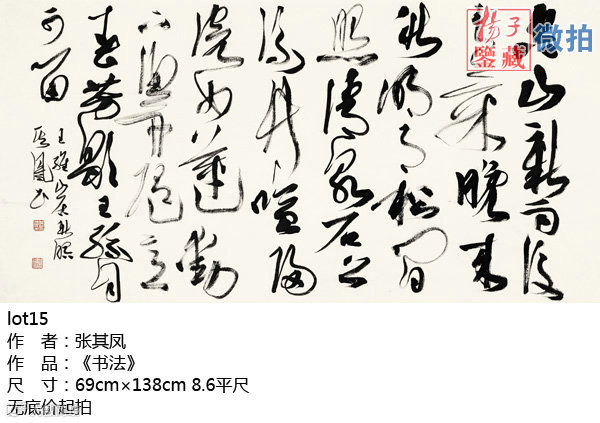 空山新雨後
天氣晚來
秋明月松間
照清泉石上
流竹喧歸
浣女蓮動
下漁舟隨意
春芳歇王孫自
可留
王維山居秋暝
其鳳书
揚子
鑒藏
微拍
lot15
作 者：张其凤
作 品：《书法》
尺 寸：69cm×138cm 8.6平尺
无底价起拍